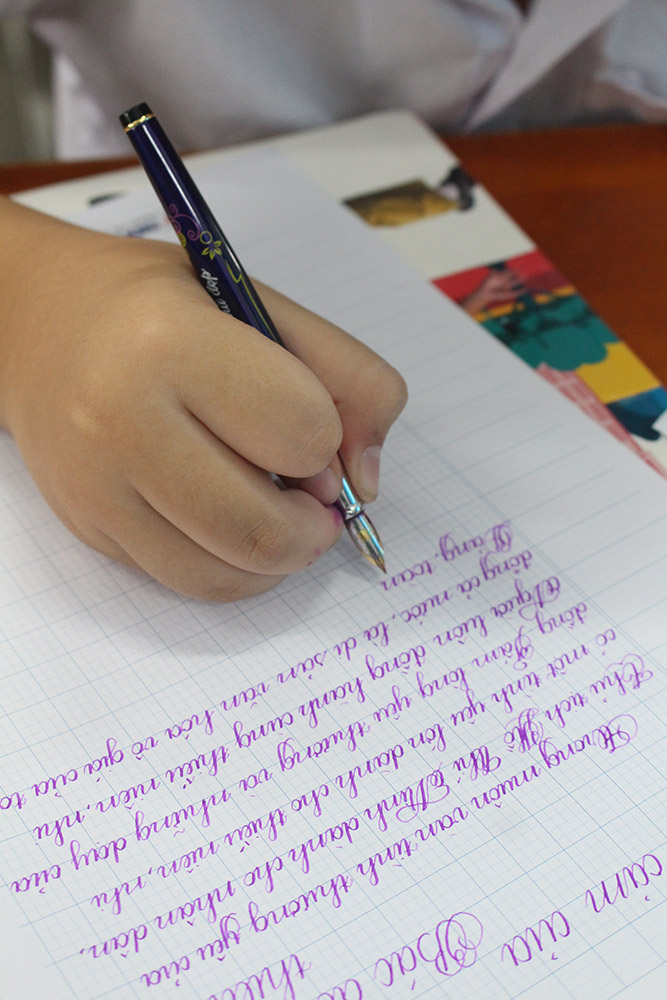 cảm của
Bác
thiếu
Trong muôn vàn tình thương yêu của
Chủ tịch Hồ Chí Minh dành cho nhân dân,
có một tình yêu lớn dành cho thiếu niên, nhi
đồng. Tấm lòng yêu thương và những dạy của
Người luôn đồng hành cùng thiếu niên, nhi
đồng cả nước, là di sản văn hóa vô giá của to
Đảng, toàn